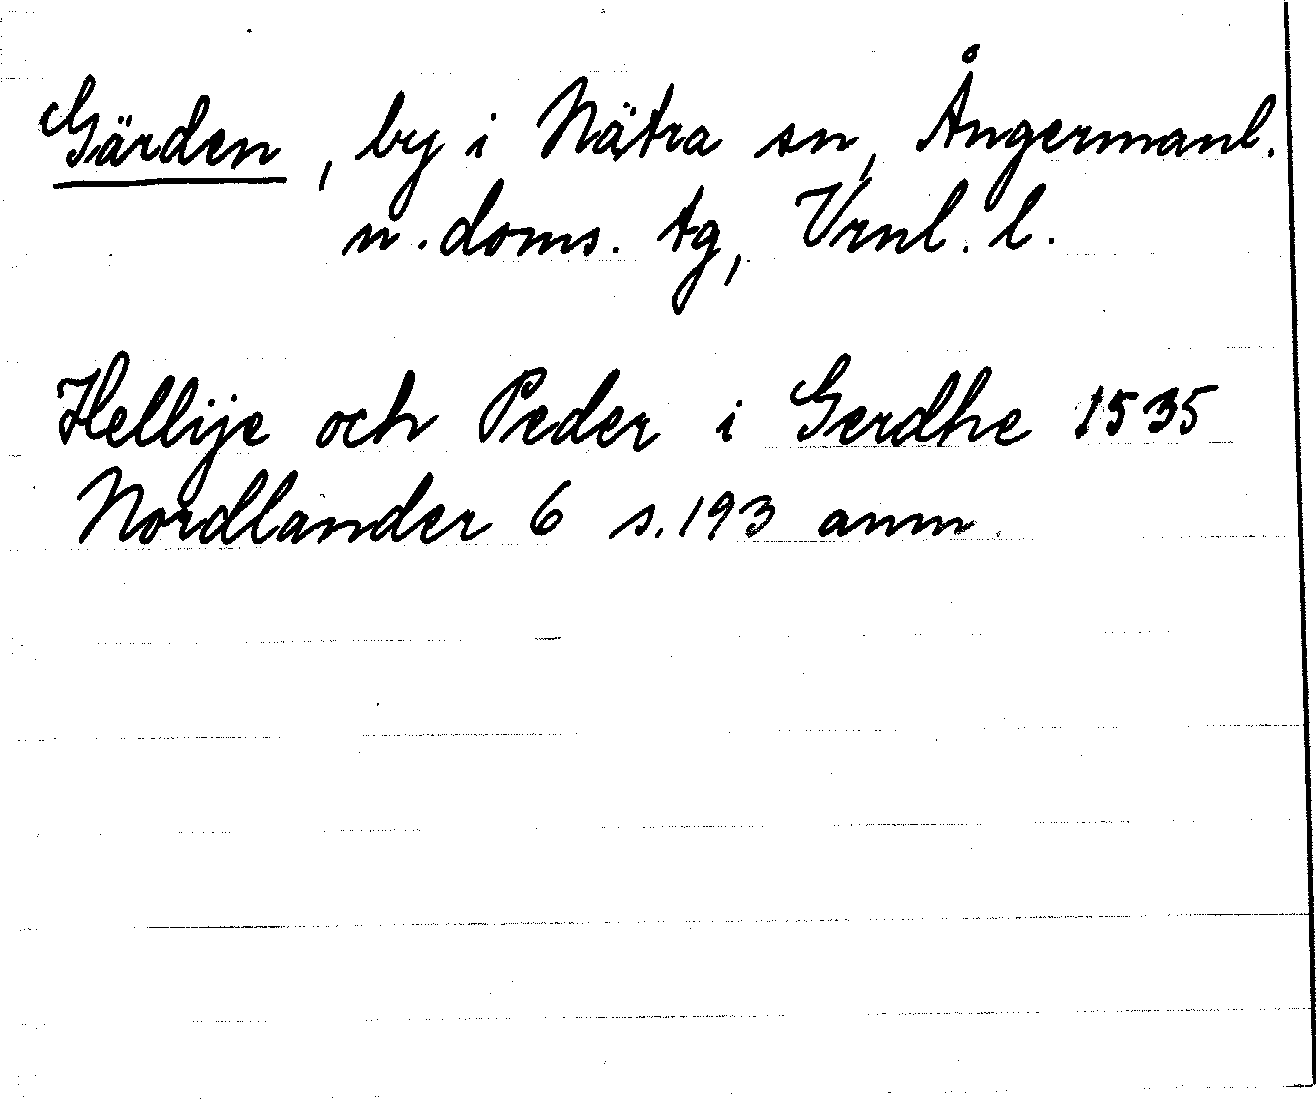 Gärden, by i Nätra sn, Ångermanl.
n. doms. tg, Vrnl. l.
Hellije och Peder i Gerdhe 1535
Nordlander 6 s. 193 anm.